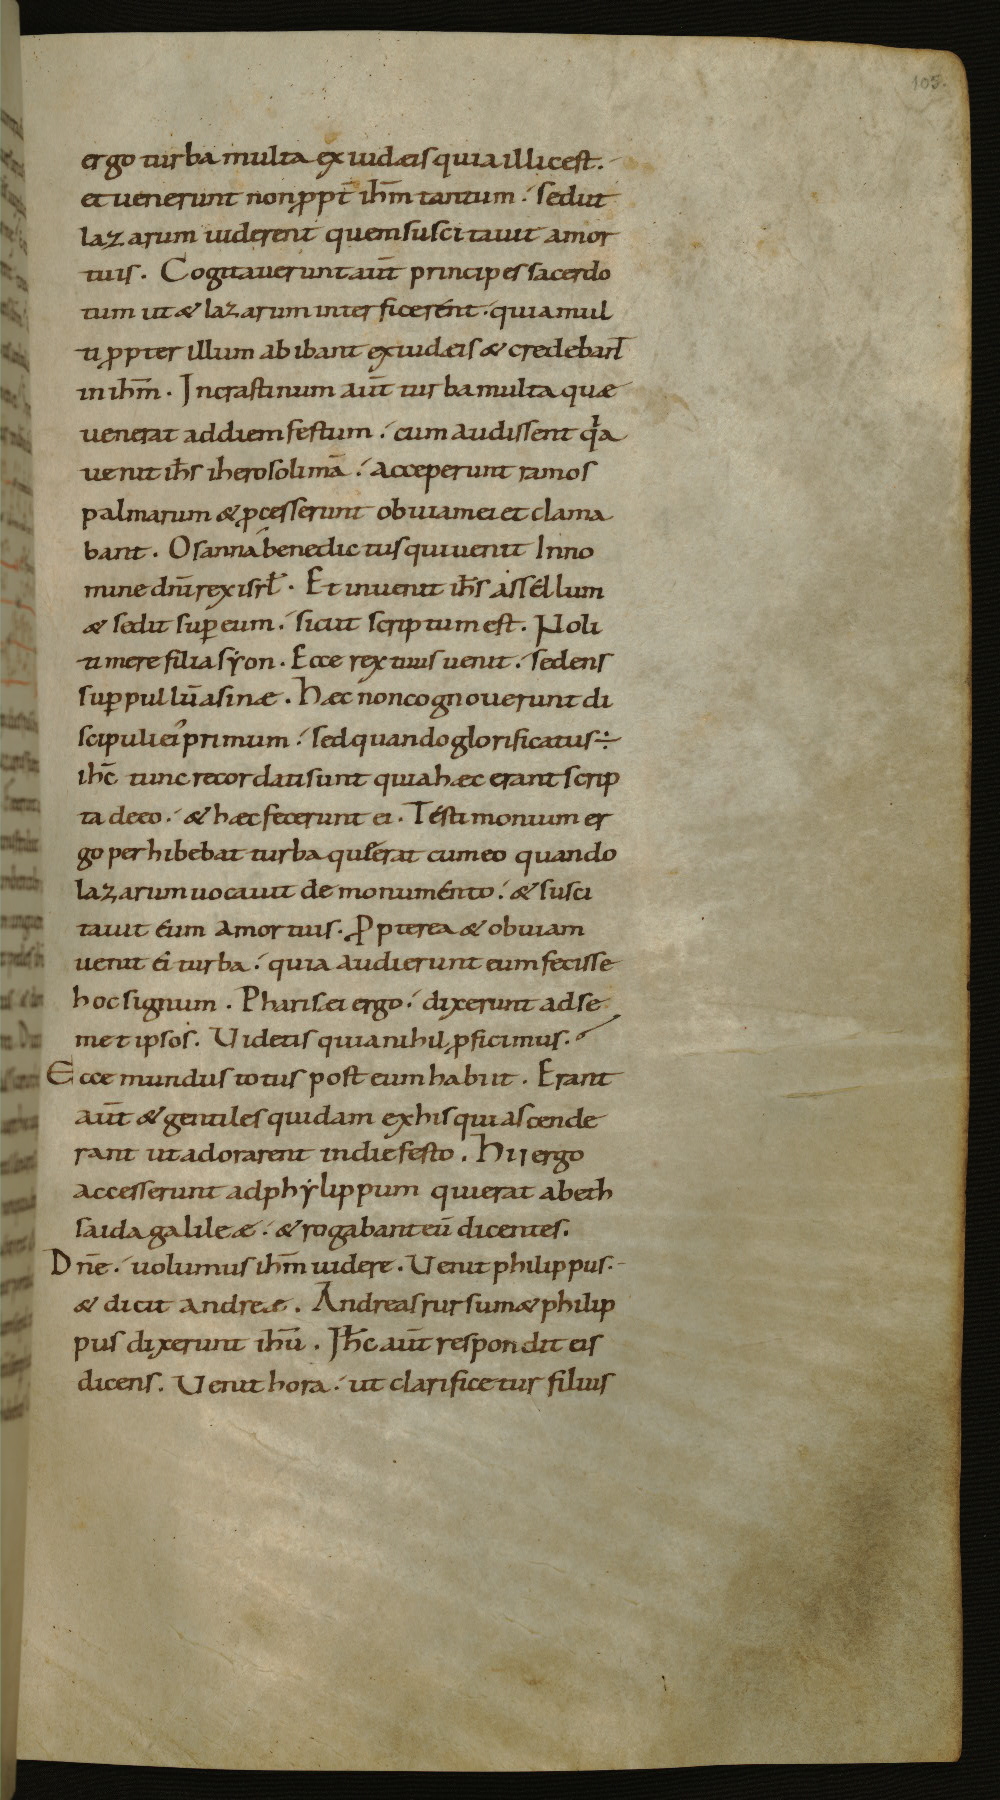 105.
ergo turba multa ex iudæis quia illic est.
et uenerunt non ppt̄ ihm̄ tantum. sed ut
lazarum uiderent quem suscitauit a mor
tuis. Cogitauerunt aut̄ principes sacerdo
tum ut & lazarum interficerent. quia mul
ti ppter illum abibant ex iudæis & credebant
in ihm̄. In crastinum aut̄ turba multa quæ
uenerat ad diem festum. cum audissent qa
uenit ihs̄ iherosolimā. acceperunt ramos
palmarum & pcesserunt obuiam ei et clama
bant. Osanna benedictus qui uenit In no
mine dnī rex isrl̄. Et inuenit ihs̄ assellum
& sedit sup eum. sicut scriptum est. Noli
timere filia syon. Ecce rex tuus uenit. sedens
sup pullū asinæ. Hæc non cognouerunt di
scipuli ei' primum. sed quando glorificatus ÷
ihc̄ tunc recordati sunt quia hæc erant scrip
ta de eo. & hæc fecerunt ei. Testimonium er
go perhibebat turba qu erat cum eo quando
lazarum uocauit de monumento. & susci
tauit eum a mortuis. Ppterea & obuiam
uenit ei turba. quia audierunt eum fecisse
hoc signum. Pharisei ergo. dixerunt ad se
met ipsos. Uidetis quia nihil pficimus.
Ecce mundus totus post eum habiit. Erant
aut̄ & gentiles quidam ex his qui ascende
rant ut adorarent in die festo. Hii ergo
accesserunt ad phylippum qui erat a beth
saida galileæ. & rogabant eū dicentes.
Dnē. uolumus ihm̄ uidere. Uenit philippus.
& dicit andreæ. Andreas rursum & philip
pus dixerunt ihū. Ihc̄ aut̄ respondit eis
dicens. Uenit hora. ut clarificetur filius